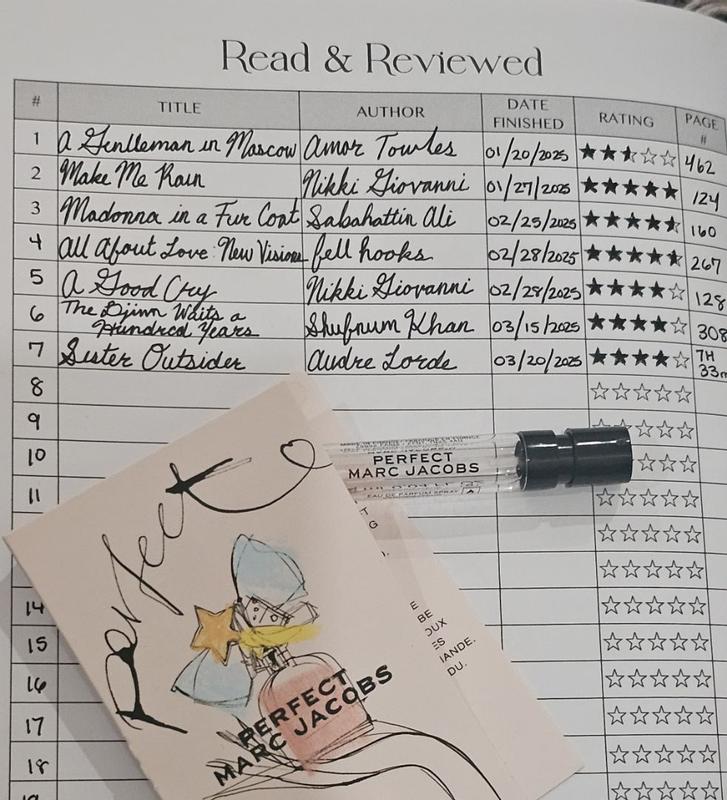 Read & Reviewed
# TITLE AUTHOR DATE FINISHED RATING PAGE #
1 A Gentleman in Moscow Amor Towles 01/20/2025 462
2 Make Me Rain Nikki Giovanni 01/27/2025 124
3 Madonna in a Fur Coat Sabahattin Ali 02/25/2025 160
4 All About Love: New Visions bell hooks 02/28/2025 267
5 A Good Cry Nikki Giovanni 02/28/2025 128
6 The Djinn Waits a Hundred Years Shubnum Khan 03/15/2025 308
7 Sister Outsider Audre Lorde 03/20/2025 7H 33m
8
9
10
11
14
15
16
17
18
PERFECT
MARC JACOBS
EAU DE PARFUM SPRAY
perfect
PERFECT
MARC JACOBS